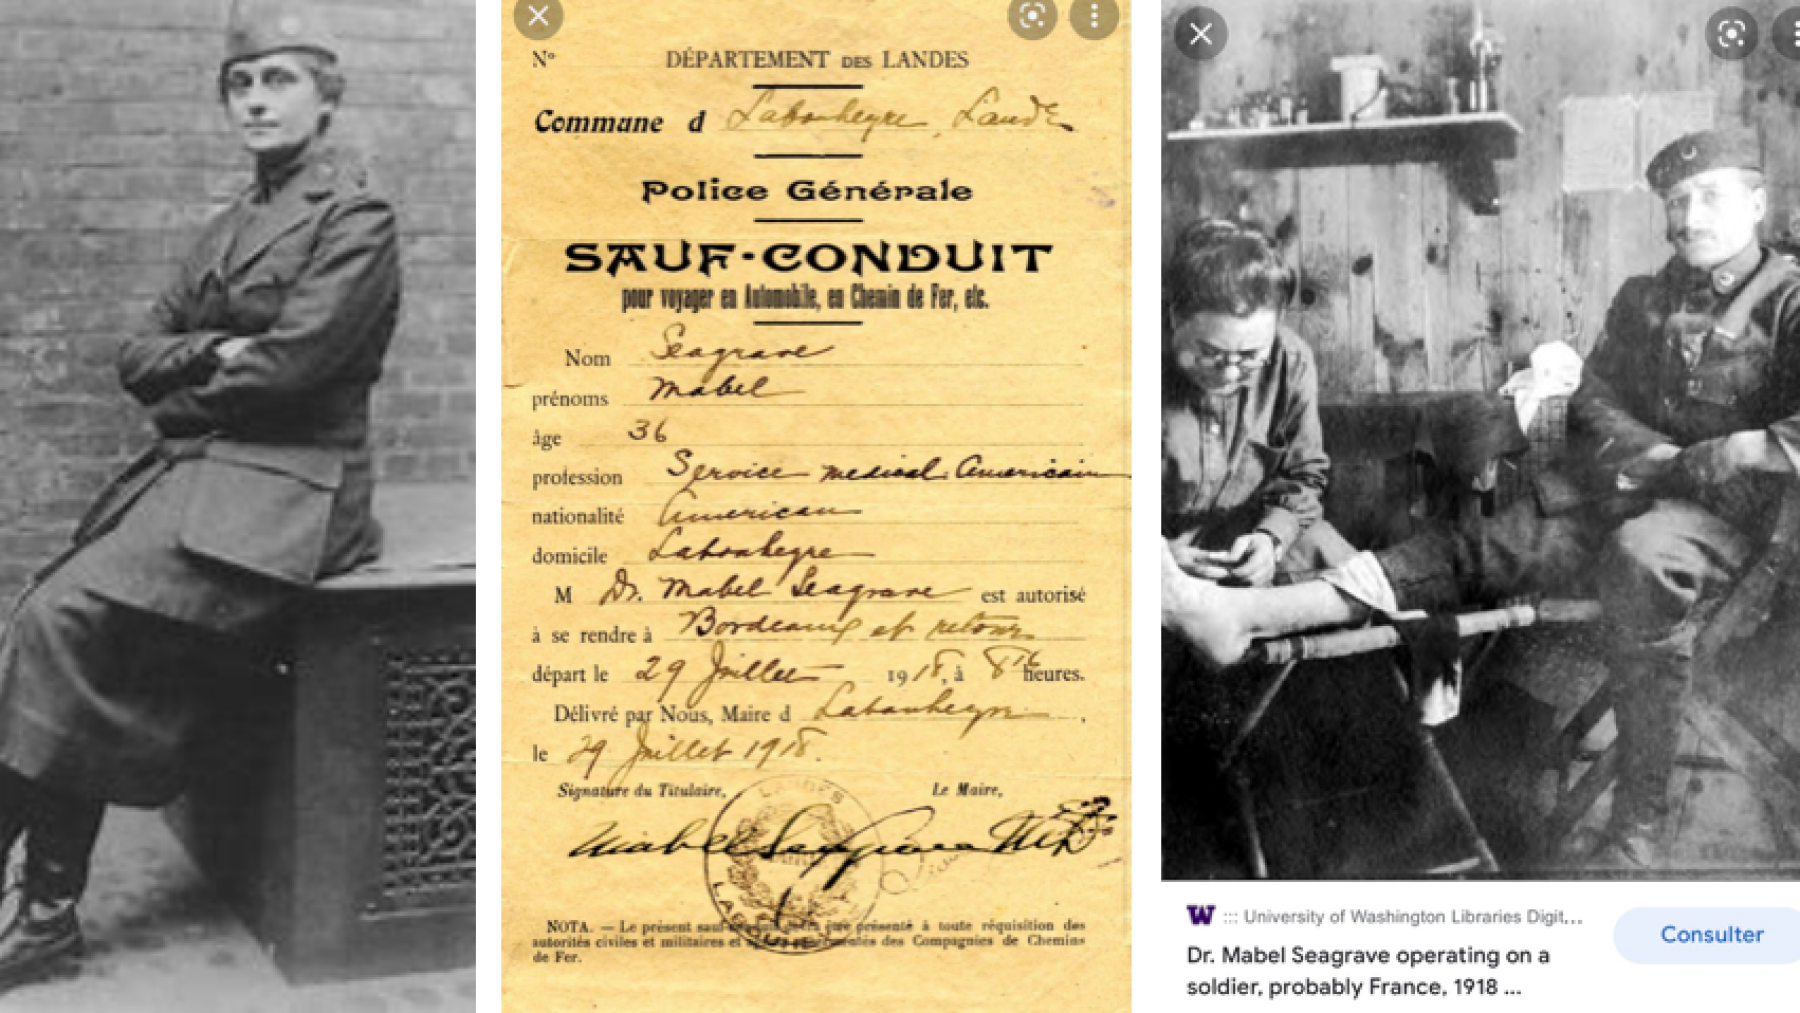 N° DÉPARTEMENT DES LANDES
Commune d Labouheyre, Landes
Police Générale
SAUF-CONDUIT
pour voyager en Automobile, en Chemin de Fer, etc.
Nom Seagrave
prénoms Mabel
âge 36
profession Service medical Americain
nationalité American
domicile Labouheyre
M Dr. Mabel Seagrave est autorisé
à se rendre à Bordeaux et retour
départ le 29 Juillet 1918, à 8 heures.
Délivré par Nous, Maire d Labouheyre,
le 29 Juillet 1918.
Signature du Titulaire, Le Maire,
Mabel Seagrave MD
LANDES
NOTA. — Le présent sauf- être présenté à toute réquisition des
autorités civiles et militaires et des Compagnies de Chemins
de Fer.
W ::: University of Washington Libraries Digit...
Consulter
Dr. Mabel Seagrave operating on a
soldier, probably France, 1918 ...